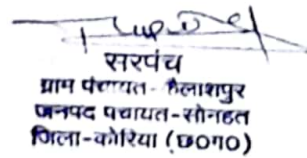 सरपंच
ग्राम पंचायत - कैलाशपुर
जनपद पंचायत - सोनहत
जिला - कोरिया (छ०ग०)